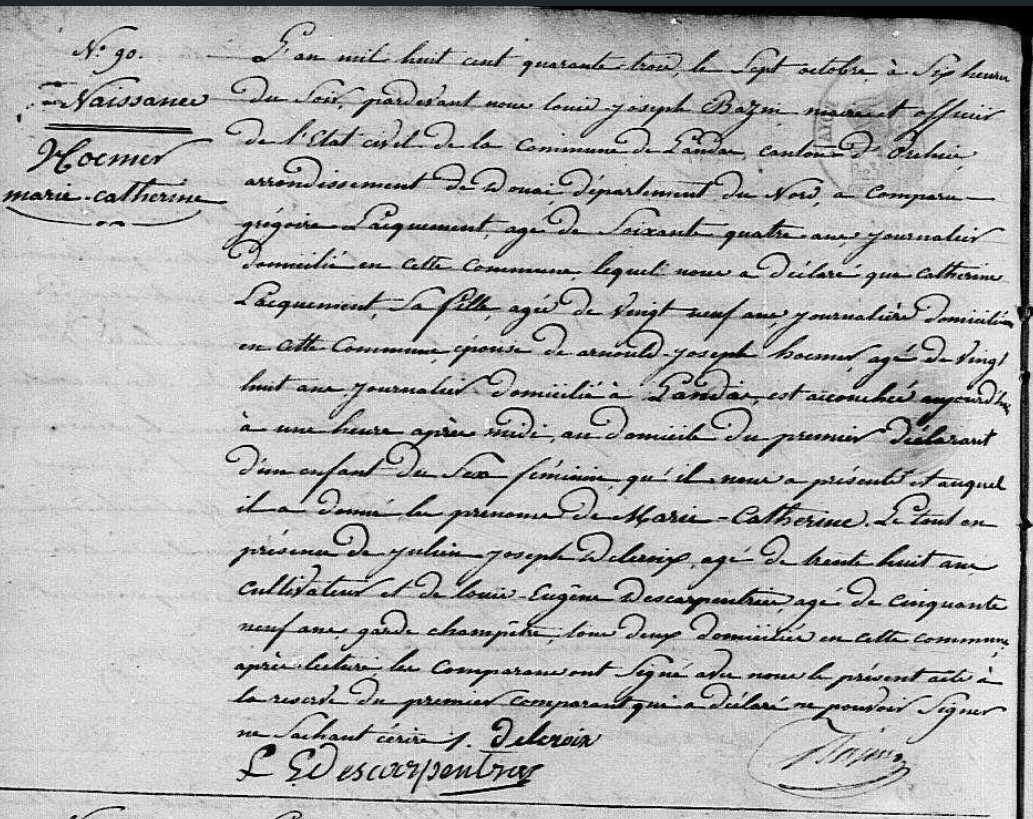 N° 90.
Naissance
Hoemer
marie-catherine
L'an mil huit cent quarante trois, le Sept octobre, à Six heures
du Soir, pardevant nous louis joseph Bazin maire et officier
de l'Etat civil de la Commune de Landas canton d'Orchies
arrondissement de Douai, département du Nord, a comparu
grégoire Lacquement, agé de Soixante quatre ans, journalier
domicilié en cette commune lequel nous a déclaré que catherine
Lacquement, Sa fille, agée de vingt neuf ans, journalière domiciliée
en cette Commune, épouse de arnould joseph hoemer, agé de vingt
huit ans journalier domicilié à Landas, est accouchée aujourd'hui
à une heure après midi, au domicile du premier déclarant
d'un enfant du Sexe féminin qu'il nous a présenté et auquel
il a donné les prenoms de Marie-Catherine. Le tout en
présence de julien joseph Delcroix, agé de trente huit ans,
cultivateur et de louis-Eugène Descarpentries, agé de cinquante
neuf ans, garde champêtre, tous deux domiciliés en cette commune,
après lecture les comparans ont Signé avec nous le présent acte à
la reserve du premier comparant qui a déclaré ne pouvoir Signer
ne Sachant écrire J. Delcroix
L E Descarpentries
Bazin